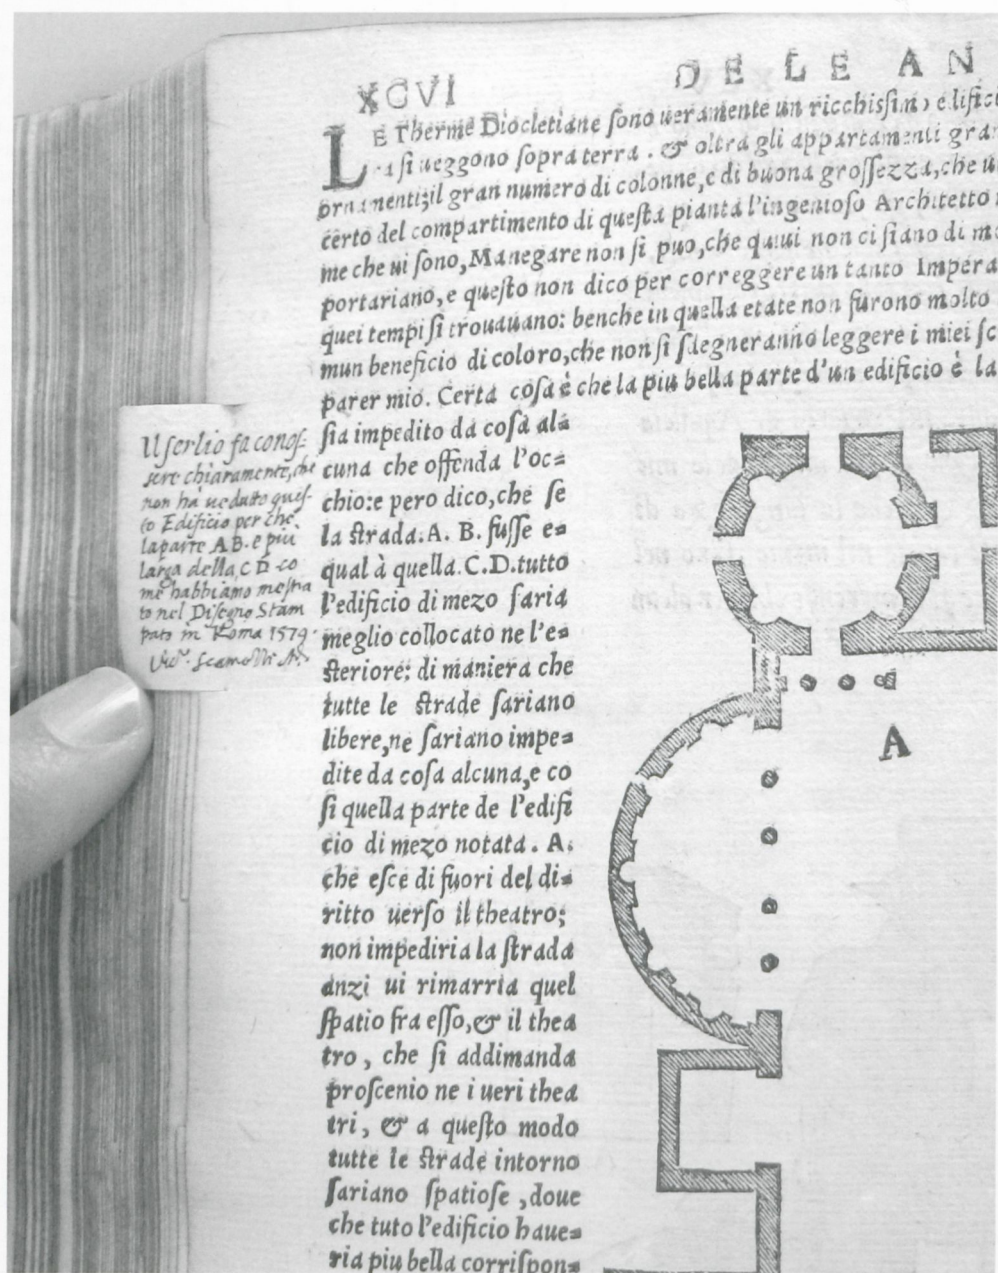 XCVI
DELE AN
LE Therme Diocletiane ſono ueramente un ricchiſſimo edifici
ſi ueggono ſopra terra . & oltra gli appartamenti gra
ornamenti; il gran numero di colonne, e di buona groſſezza, che u
certo del compartimento di queſta pianta l'ingenioſo Architetto
me che ui ſono, Manegare non ſi puo, che quiui non ci ſiano di m
portariano, e queſto non dico per correggere un tanto Impera
quei tempi ſi trouauano: benche in quella etate non furono molto
mun beneficio di coloro, che non ſi ſdegneranno leggere i miei ſc
parer mio. Certa coſa è che la piu bella parte d'un edificio è la
ſia impedito da coſa al=
cuna che offenda l'oc=
chio: e pero dico, che ſe
la ſtrada. A. B. fuſſe e=
qual à quella. C. D. tutto
l'edificio di mezo ſaria
meglio collocato ne l'e=
ſteriore: di maniera che
tutte le ſtrade ſariano
libere, ne ſariano impe=
dite da coſa alcuna, e co
ſi quella parte de l'edifi
cio di mezo notata. A.
che eſce di fuori del di=
ritto uerſo il theatro;
non impediria la ſtrada
anzi ui rimarria quel
ſpatio fra eſſo, & il thea
tro, che ſi addimanda
proſcenio ne i ueri thea
tri, & a queſto modo
tutte le ſtrade intorno
ſariano ſpatioſe, doue
che tuto l'edificio haue=
ria piu bella corriſpon=
Il ſerlio fa conoſ-
ſere chiaramente, che
non ha ueduto queſ-
to Edificio per che
la parte AB. e piu
larga della, CD. co
me habbiamo moſtra
to nel Diſegno Stam
pato in Roma 1579.
A